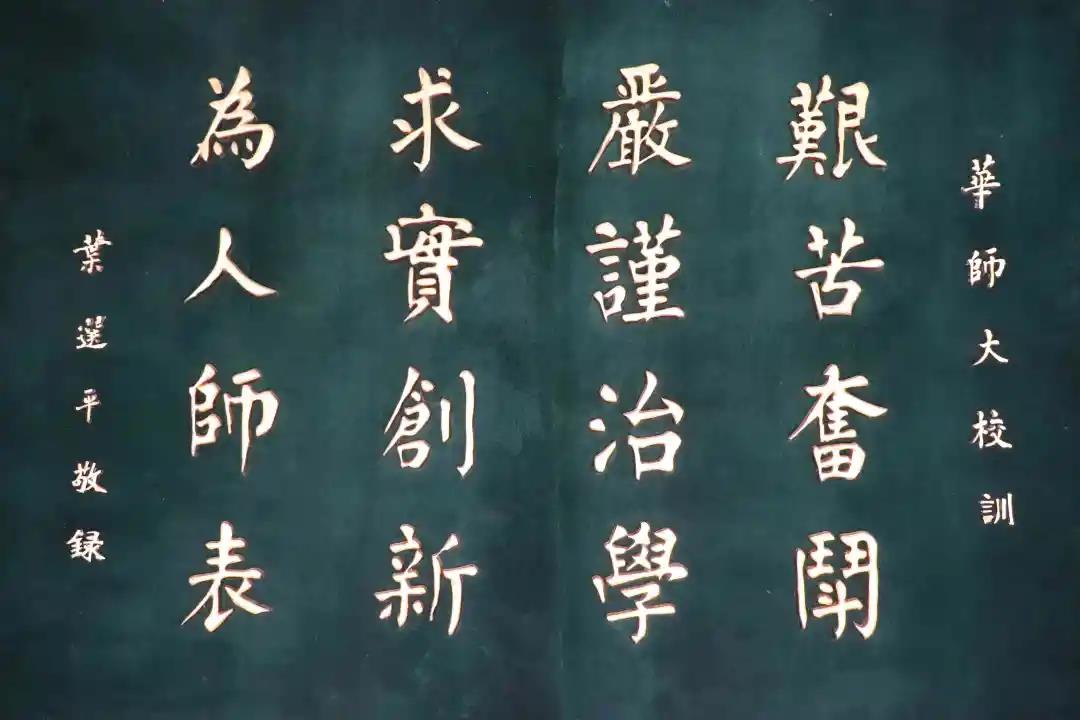 華師大校訓
艱苦奮鬪
嚴謹治學
求實創新
為人師表
葉選平敬録